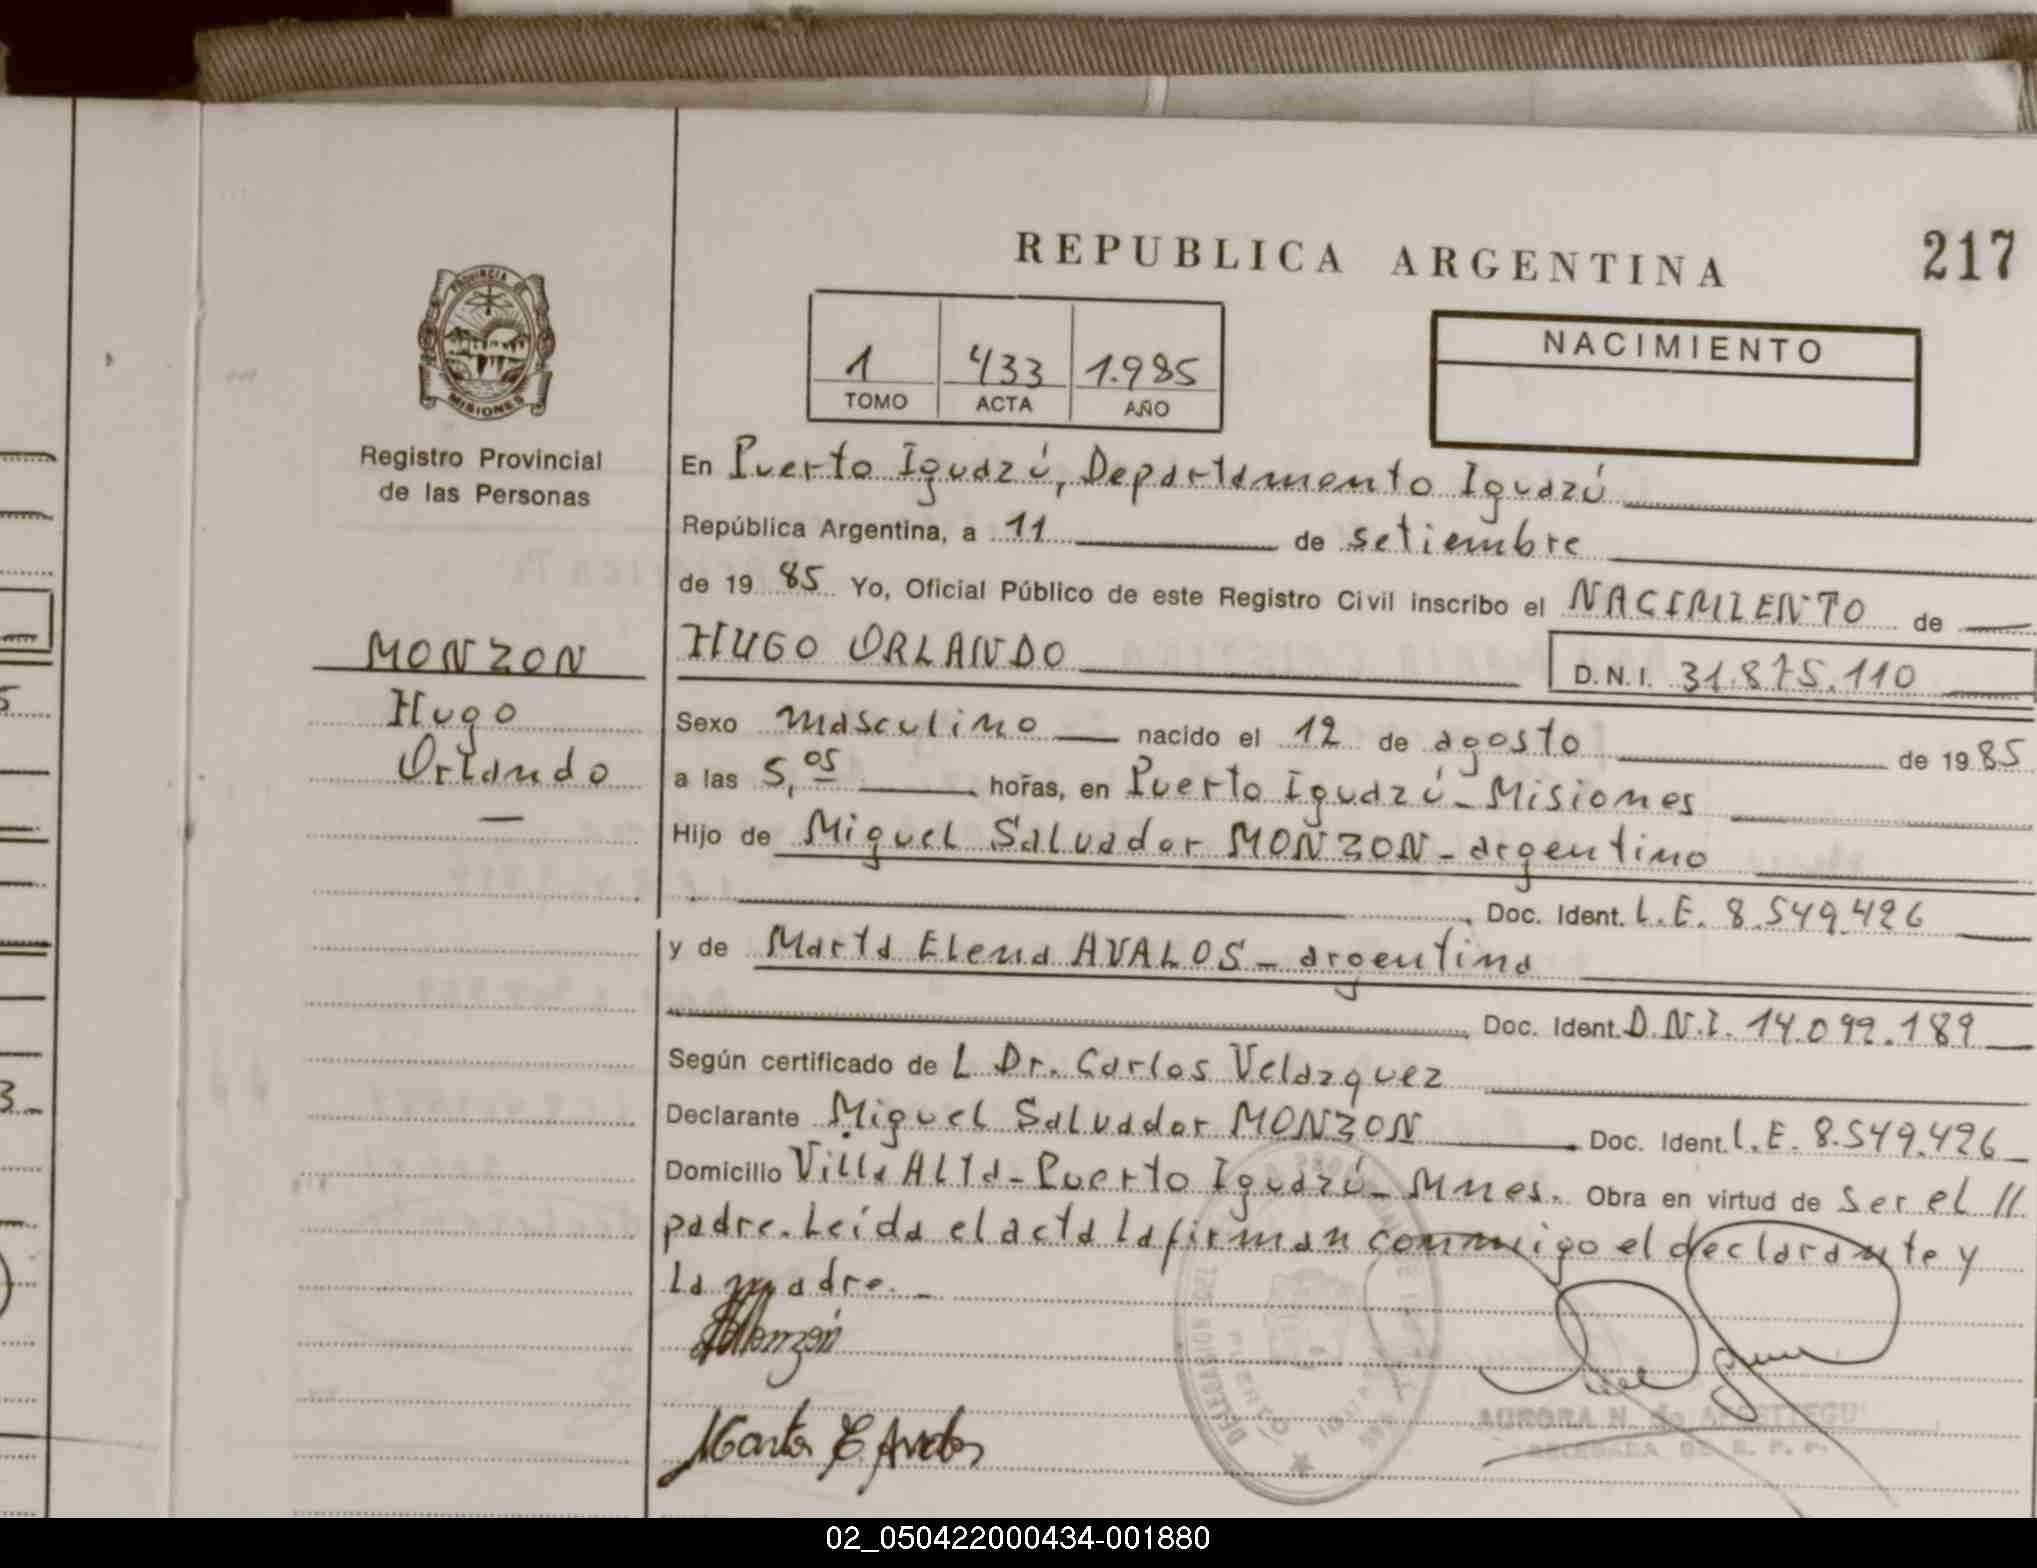 REPUBLICA ARGENTINA
217
PROVINCIA DE
MISIONES
Registro Provincial
de las Personas
1 433 1.985
TOMO ACTA AÑO
NACIMIENTO
En Puerto Iguazú, Departamento Iguazú
República Argentina, a 11 de setiembre
de 1985 Yo, Oficial Público de este Registro Civil inscribo el NACIMIENTO de
MONZON
Hugo
Orlando
HUGO ORLANDO
D.N.I. 31.875.110
Sexo masculino nacido el 12 de agosto de 1985
a las 5,05 horas, en Puerto Iguazú - Misiones
Hijo de Miguel Salvador MONZON - argentino
Doc. Ident. L.E. 8.549.426
y de Marta Elena AVALOS - argentina
Doc. Ident. D.N.I. 14.099.189
Según certificado de L Dr. Carlos Velazquez
Declarante Miguel Salvador MONZON Doc. Ident. L.E. 8.549.426
Domicilio Villa Alta - Puerto Iguazú - Mnes. Obra en virtud de ser el //
padre. Leída el acta la firman conmigo el declarante y
la madre. -
Monzón
Marta E Avalos
AURORA N. de
02_050422000434-001880